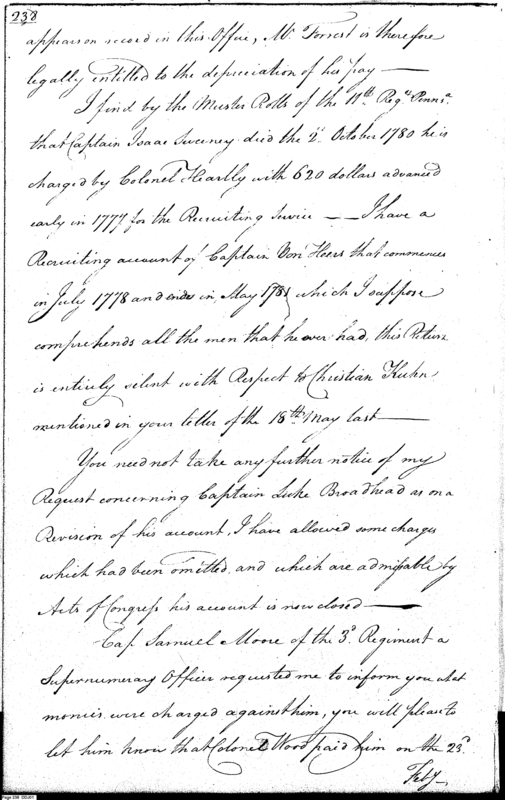 238
appears on record in this Office, Mr. Forrest is therefore
legally entitled to the depreciation of his pay —
I find by the Muster Rolls of the 11th. Regt. Pennsa.
that Captain Isaac Sweeney died the 2d. October 1780 he is
charged by Colonel Heartly with 620 dollars advanced
early in 1777 for the Recruiting Service — — I have a
Recruiting account of Captain Von Heers that commences
in July 1778 and ends in May 1781 which I suppose
comprehends all the men that he ever had, this Return
is entirely silent with Respect to Christian Kuhn
mentioned in your letter of the 18th. May last —
You need not take any further notice of my
Request concerning Captain Luke Broadhead as on a
Revision of his account, I have allowed some charges
which had been omitted, and which are admissable by
Acts of Congress his account is now closed —
Cap. Samuel Moore of the 3d. Regiment a
Supernumerary Officer requested me to inform you what
monies were charged against him, you will please to
let him know that Colonel Wood paid him on the 23d.
Feby
Page 238 DDJ01